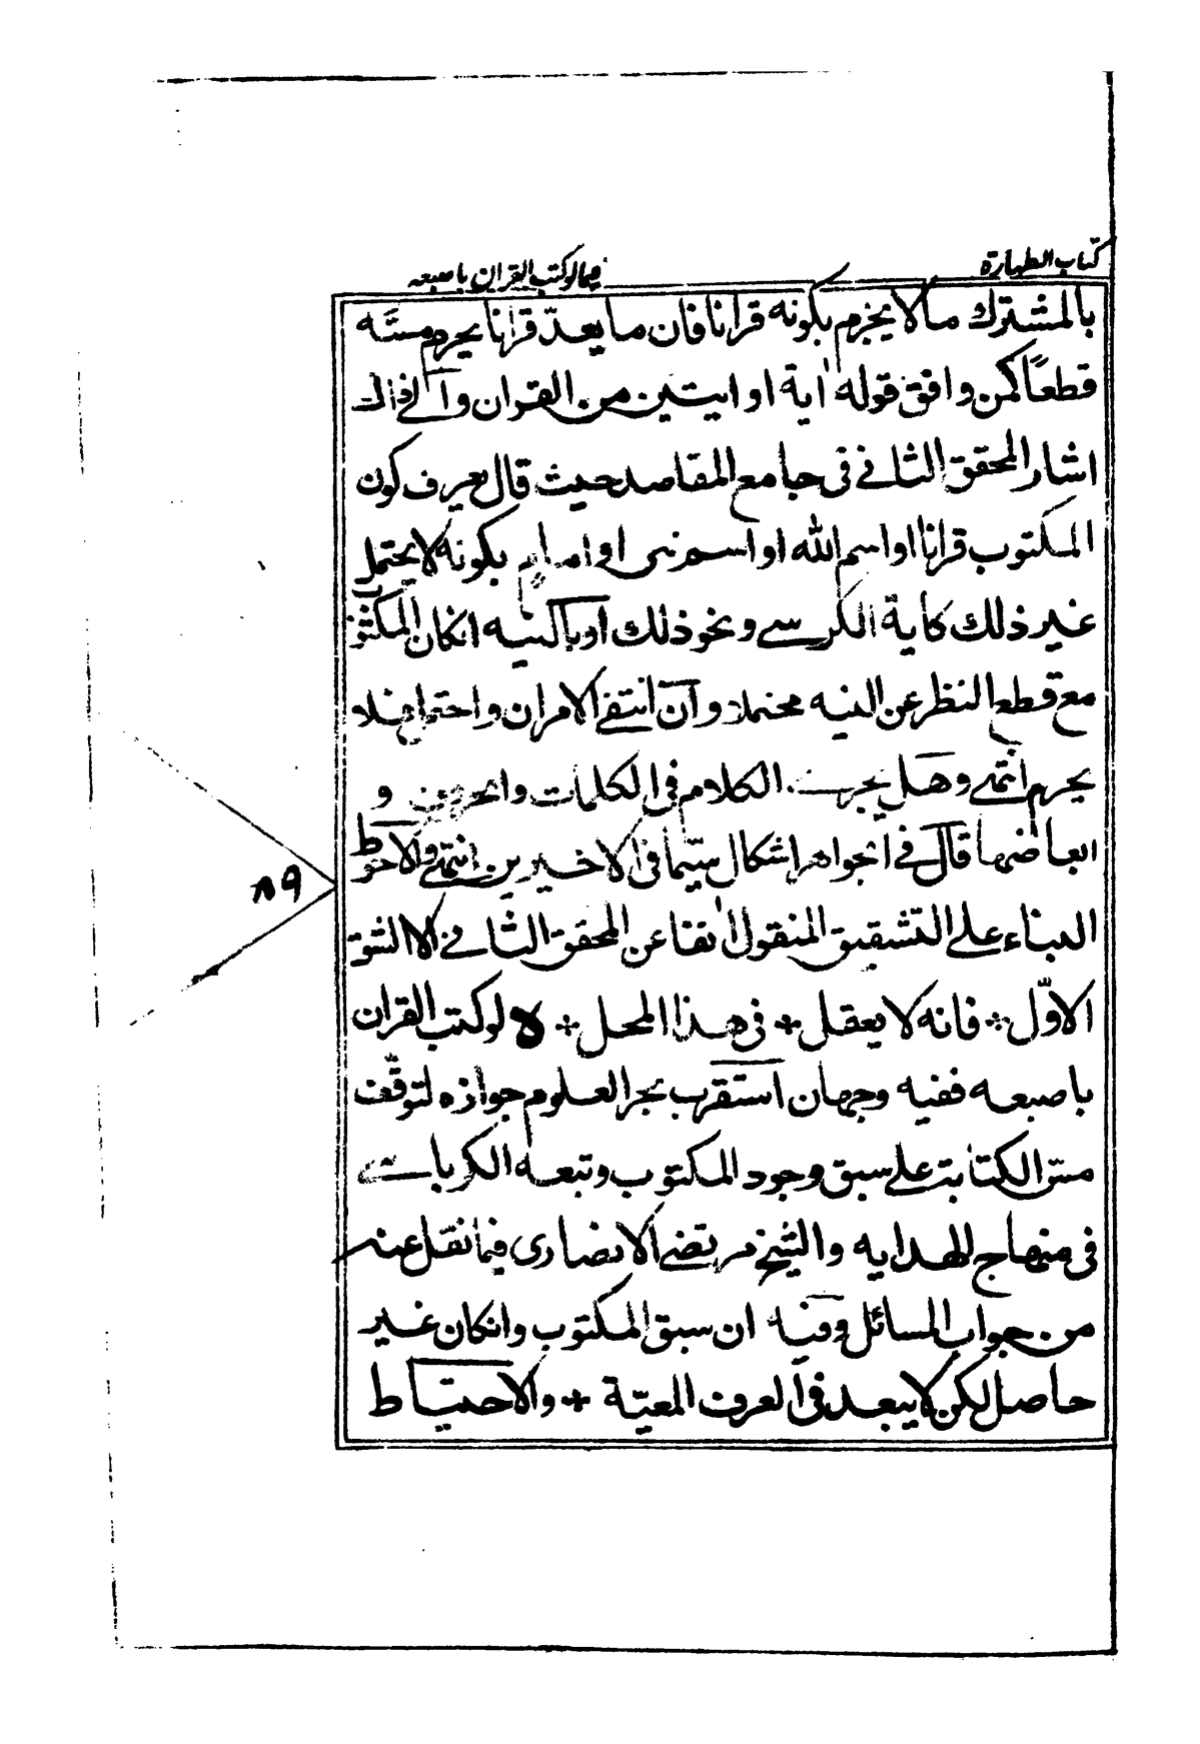 كتاب الطهارة
فيما لو كتب القران باصبعه
بالمشترك ما لا يجزم بكونه قرانا فان ما يعدّ قرانا يحرم مسّه
قطعًا كمن وافق قوله اية او ايتين من القران والى ذلك
اشار المحقق الثانى فى جامع المقاصد حيث قال يعرف كون
المكتوب قرانا او اسم الله او اسم نبى او امام بكونه لا يحتمل
غير ذلك كاية الكرسى ونحو ذلك او بالنيه انكان المكتوب
مع قطع النظر عن النيه محتملا وان انتفى الامران واحتمل فلا
يحرم انتهى وهل يجرى الكلام فى الكلمات والحروف و
ابعاضها قال فى الجواهر اشكال سيّما فى الاخيرين انتهى والاحوط
البناء على التشقيق المنقول انفا عن المحقق الثانى الا الشق
الاوّل + فانه لا يعقل + فى هذا المحل + ه لو كتب القران
باصبعه ففيه وجهان استقرب بحر العلوم جوازه لتوقّف
مسّ الكتابت على سبق وجود المكتوب وتبعه الكرباسى
فى منهاج الهدايه والشيخ مرتضى الانصارى فيما نقل عنه
من جواب المسائل وفيه ان سبق المكتوب وانكان غير
حاصل لكن لا يبعد فى العرف المعيّة + والاحتياط
٨٩